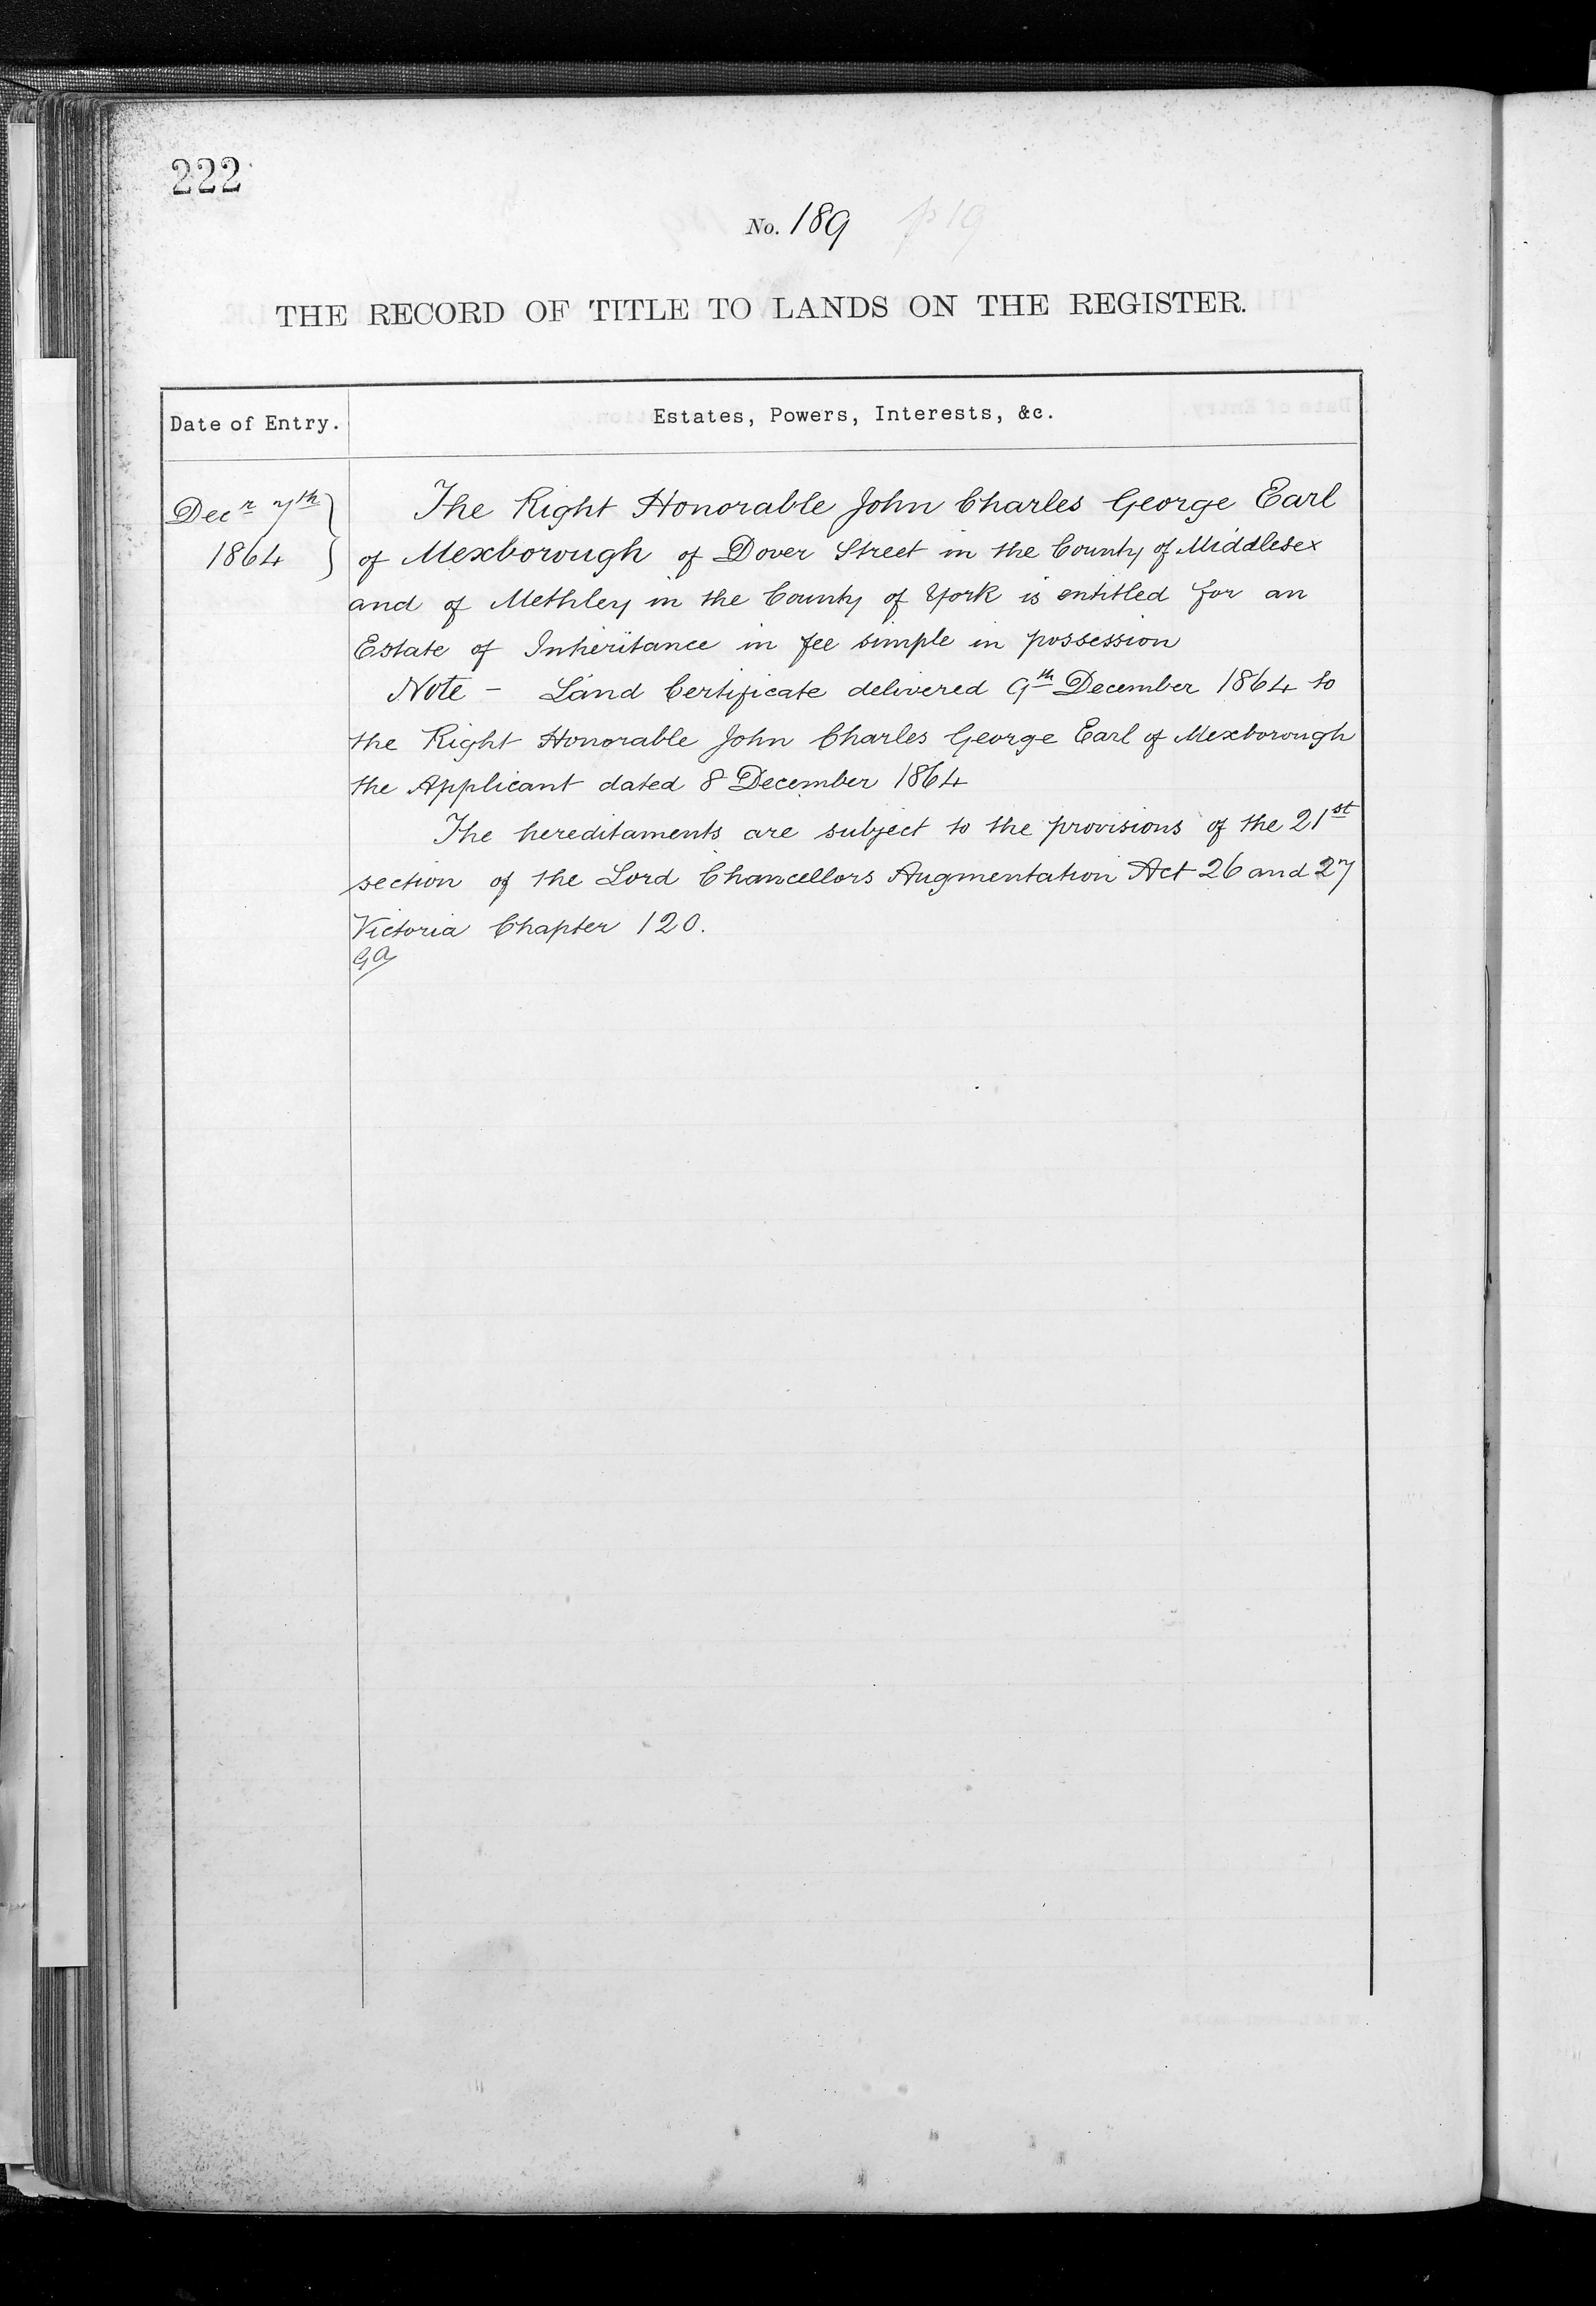 222
No. 189 p 19
THE RECORD OF TITLE TO LANDS ON THE REGISTER.
Date of Entry.
Estates, Powers, Interests, &c.
Decr 7th
1864
The Right Honorable John Charles George Earl
of Mexborough of Dover Street in the County of Middlesex
and of Methley in the County of York is entitled for an
Estate of Inheritance in fee simple in possession
Note - Land Certificate delivered 9th December 1864 to
the Right Honorable John Charles George Earl of Mexborough
the Applicant dated 8 December 1864
The hereditaments are subject to the provisions of the 21st
section of the Lord Chancellors Augmentation Act 26 and 27
Victoria Chapter 120.